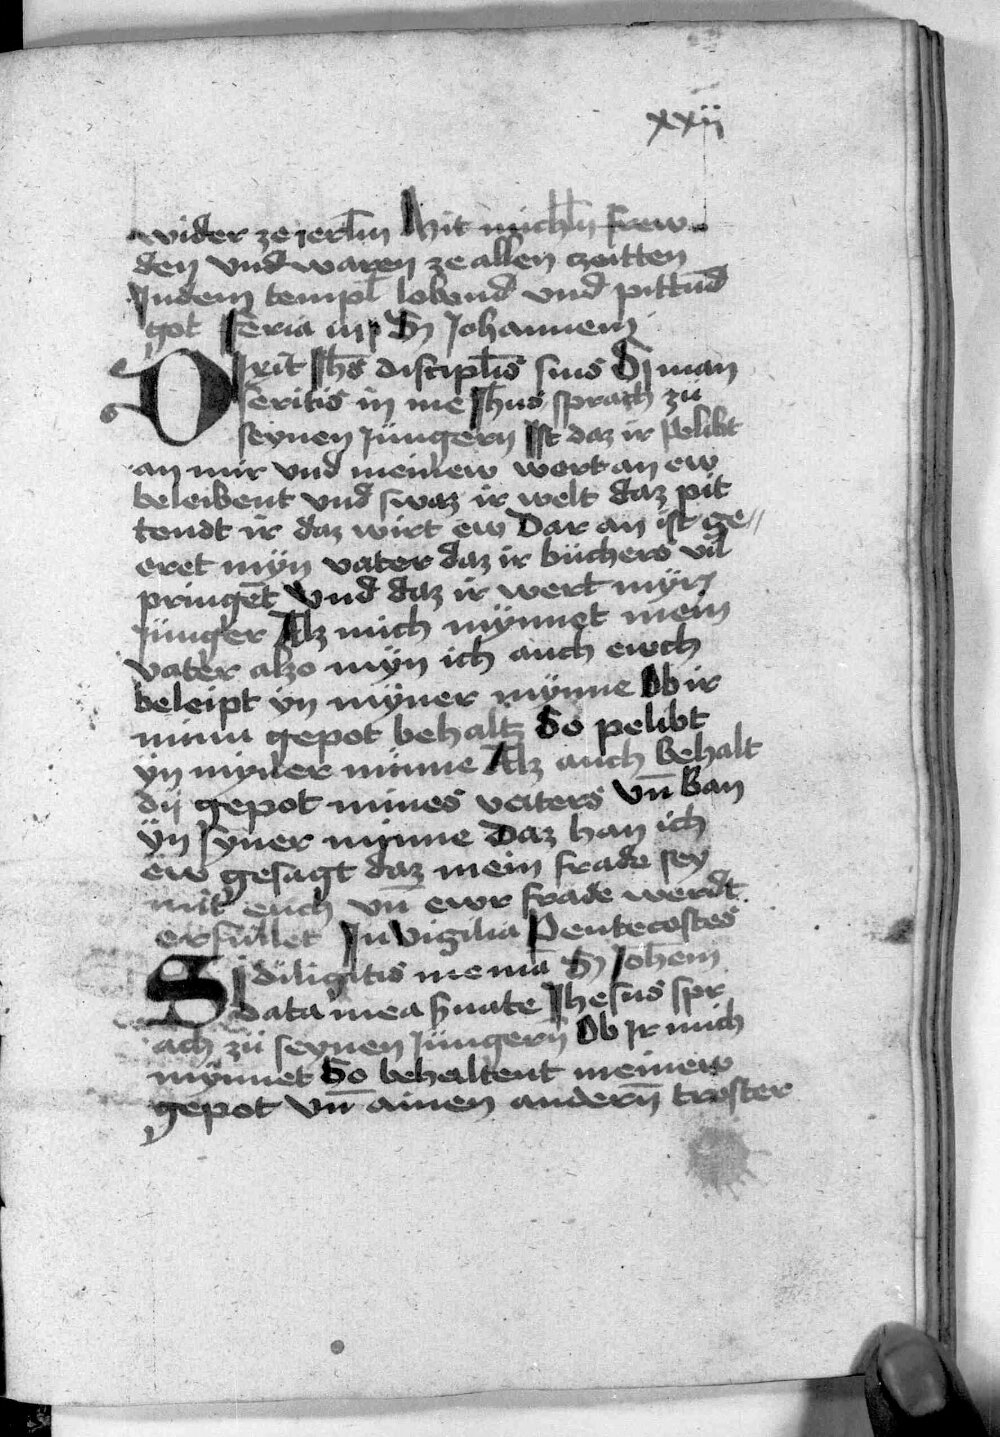 xxij
wider ze jerl̄m Mit mich̄ln frew
den vnd waren ze allen czeitten
Jndem templ̄ lobend vnd pittūd
got Feria iiij S Johannem
Dixit Jh̄s discipl̄is suis Si man
seritis in me Jh̄us sprach zü
seynen Jüngern Jst daz ir Pelibt
an mir vnd meinew wort an ew
beleibent vnd swaz ir welt daz pit
tendt ir daz wirt ew Dar an ist ge〃
eret myn vater daz ir büchers vil
pringet Vnd daz ir wert myn
Jünger Alz mich mynnet mein
vater alzo myn ich auch ewch
beleipt yn myner mynne Ob ir
minu gepot behaltz So pelibt
yn myner minne Alz auch behalt
dij gepot mines vaters Vn̄ Ban
yn syner minne Daz han ich
ew gesagt daz mein frade sey
mit euch vn̄ ewr frade werdt
erfullet Jn Vigilia Pentecostes
Si diligitis me mā S Joh̄em
data mea s̄uate Jhesus spr
ach zü seynen Jüngern̄ Ob Jr mich
mynnet So behaltent meinew
gepot vn̄ ainen andern̄ troster